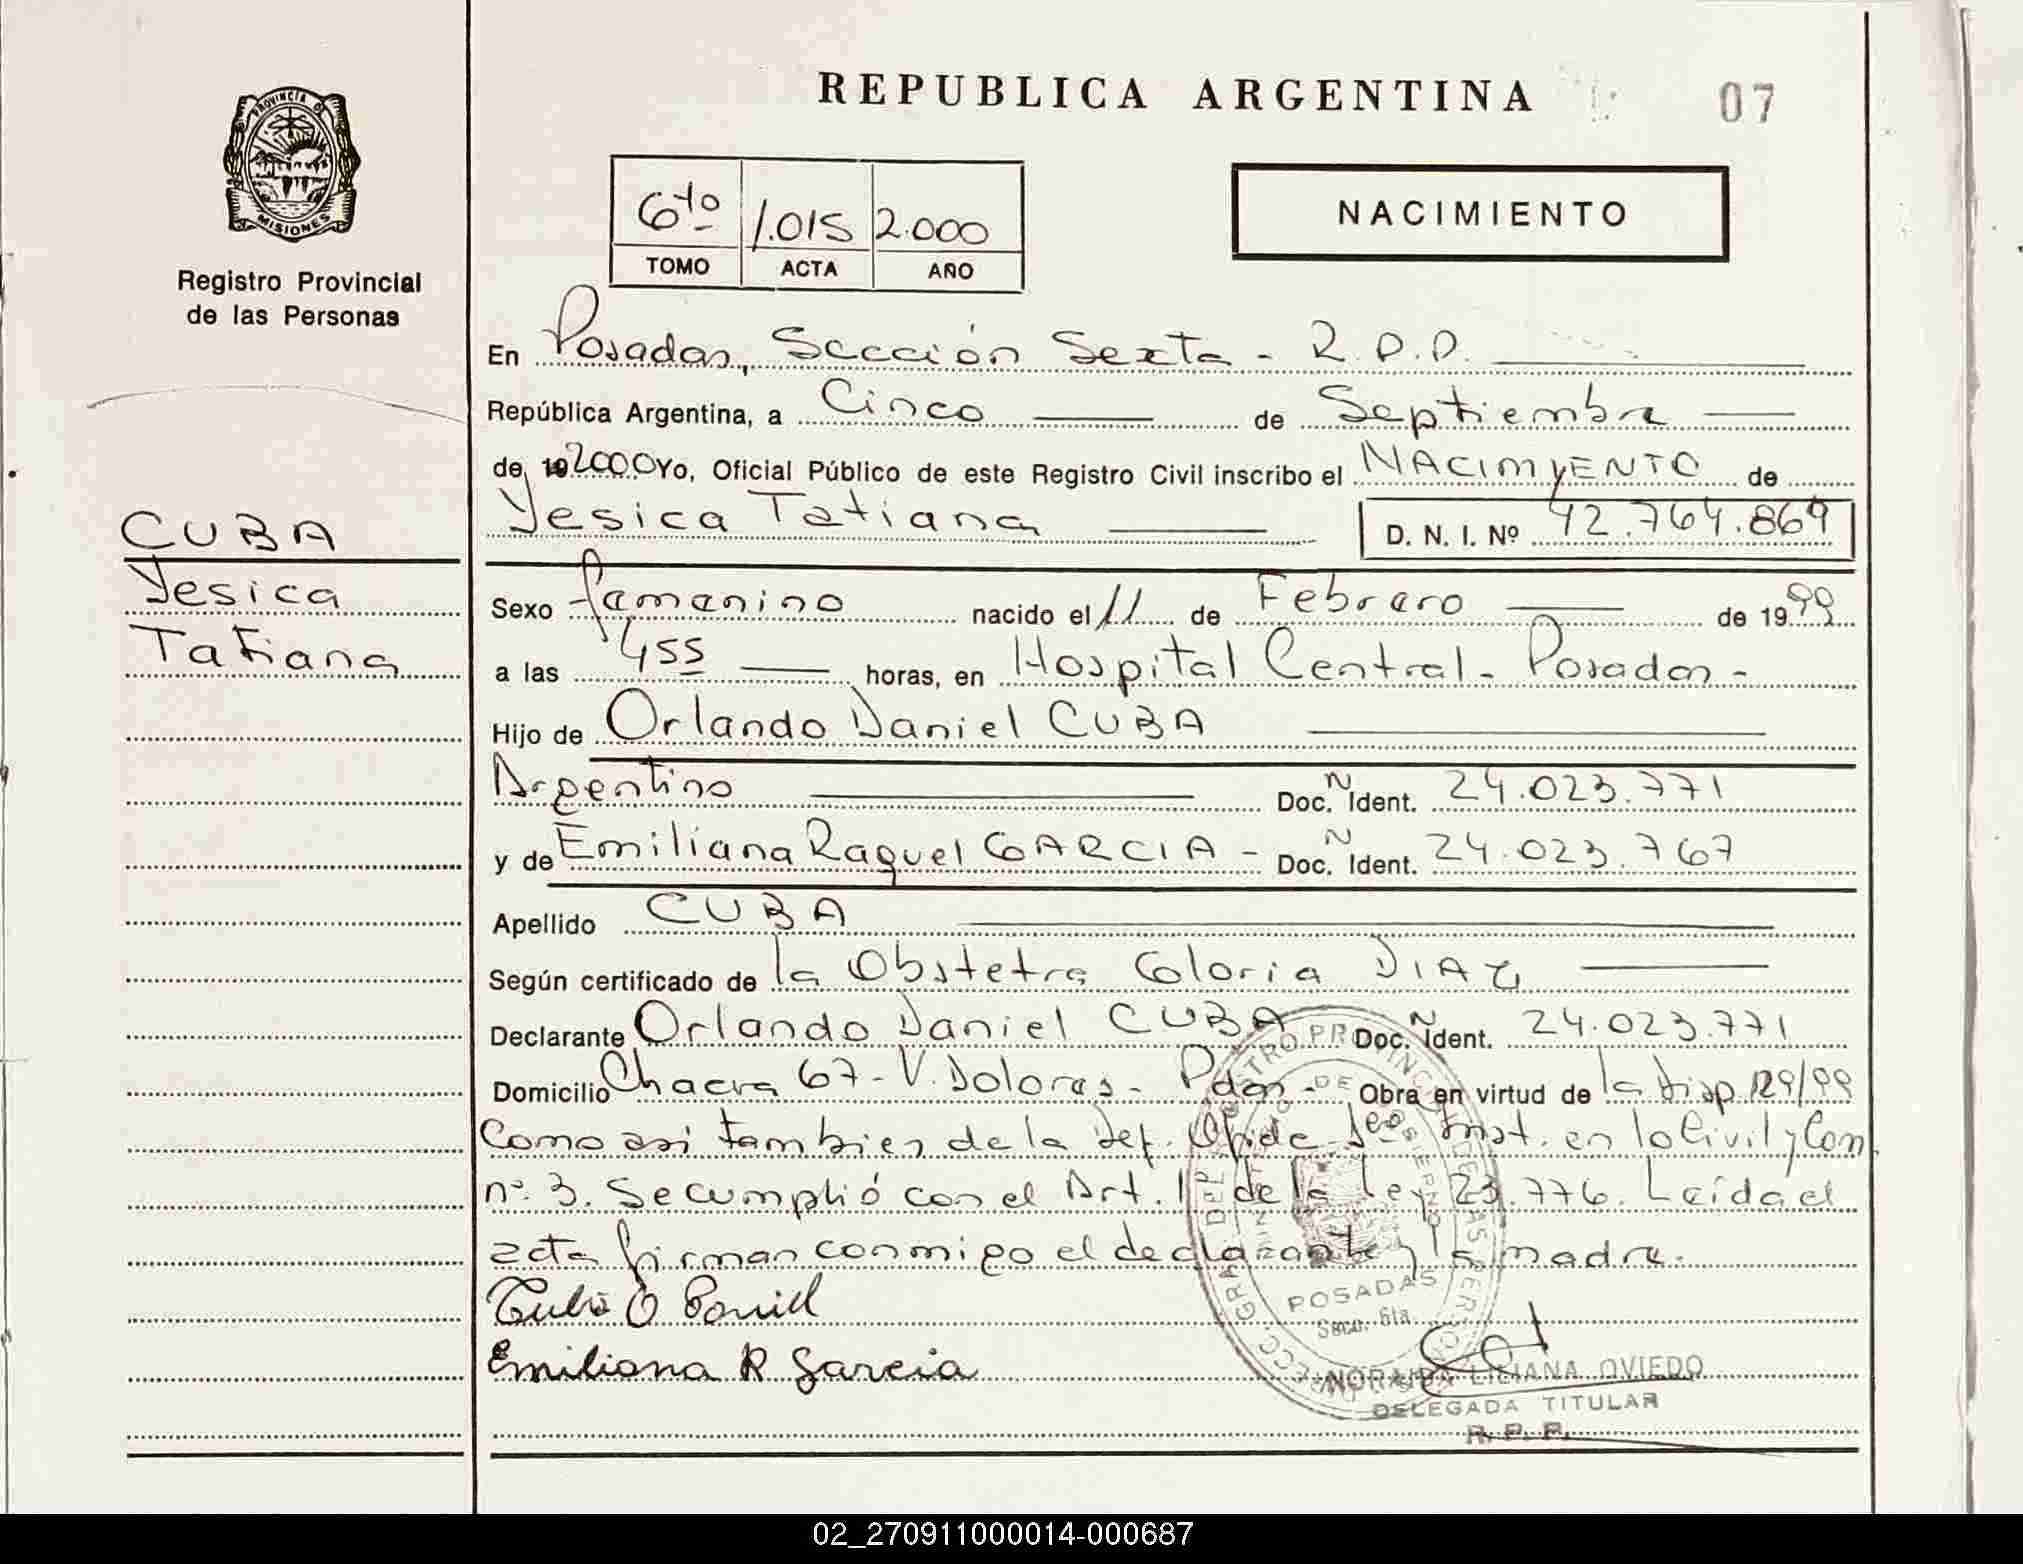 REPUBLICA ARGENTINA
07
PROVINCIA D
MISIONES
Registro Provincial
de las Personas
6to 1.015 2.000
TOMO ACTA AÑO
NACIMIENTO
En Posadas, Sección Sexta - R.P.P.
República Argentina, a Cinco de Septiembre
de 192000 Yo, Oficial Público de este Registro Civil inscribo el NACIMYENTO de
Yesica Tatiana D. N. I. Nº 42.764.869
CUBA
Yesica
Tatiana
Sexo femenino nacido el 11 de Febrero de 1999
a las 455 horas, en Hospital Central - Posadas -
Hijo de Orlando Daniel CUBA
Argentino Doc. N Ident. 24.023.771
y de Emiliana Raquel GARCIA - Doc. N Ident. 24.023.767
Apellido CUBA
Según certificado de la Obstetra Gloria DIAZ
Declarante Orlando Daniel CUBA Doc. N Ident. 24.023.771
Domicilio Chacra 67 - V. Dolores - Pdas - Obra en virtud de la Disp 129/99
Como asi tambien de la Def. Ofic de Inst. en lo Civil y Com
nº 3. Se cumplió con el Art. 1 de la Ley 23.776. Leída el
acta firman conmigo el declarante y la madre.
Cuba O Daniel
Emiliana R Garcia
POSADAS
Secc. 6ta.
NORAIDA LILIANA OVIEDO
DELEGADA TITULAR
R. P. P.
02_270911000014-000687